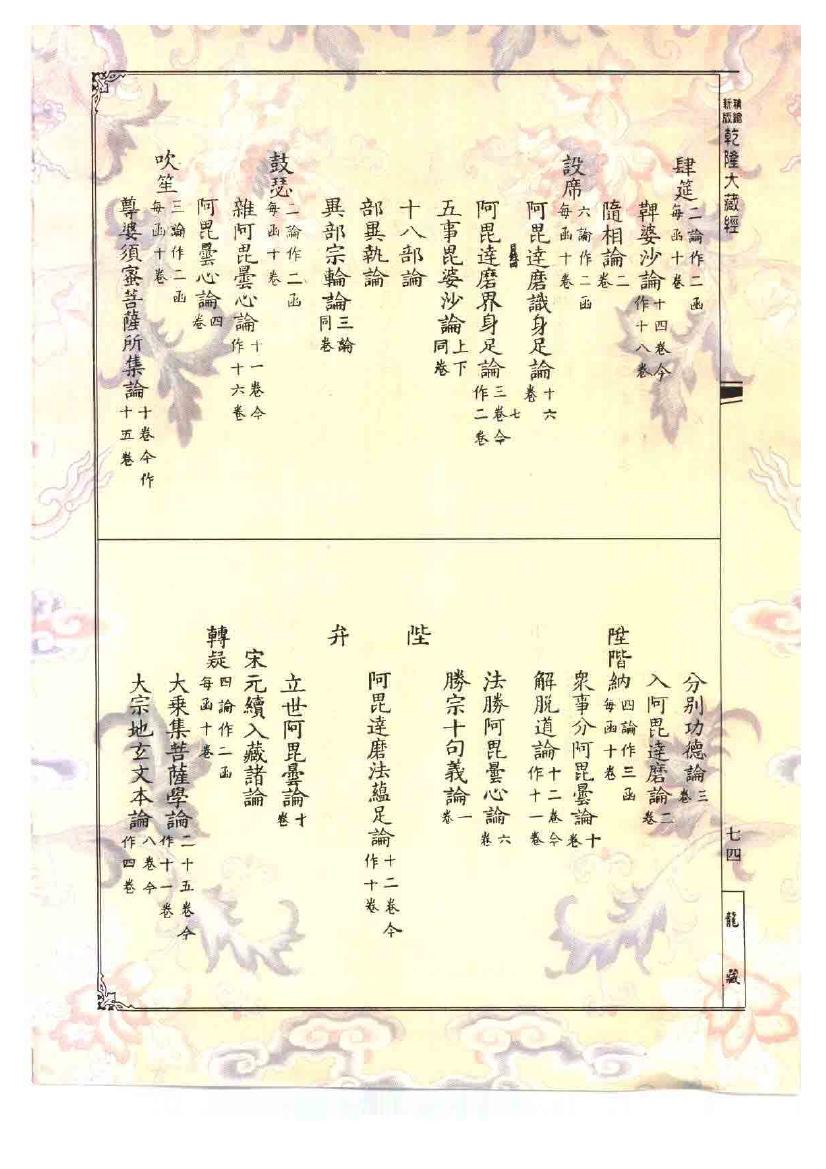 精繪新版 乾隆大藏經
肆筵 二論作二函每函十卷
鞞婆沙論 十四卷今作十八卷
隨相論 二卷
設席 六論作二函每函十卷
阿毘達磨識身足論 十六卷
阿毘達磨界身足論 三卷今作二卷
五事毘婆沙論 上下同卷
十八部論
部異執論
異部宗輪論 三論同卷
鼓瑟 二論作二函每函十卷
雜阿毘曇心論 十一卷今作十六卷
阿毘曇心論 四卷
吹笙 三論作二函每函十卷
尊婆須蜜菩薩所集論 十卷今作十五卷
分別功德論 三卷
入阿毘達磨論 二卷
陞階納 四論作三函每函十卷
眾事分阿毘曇論 十卷
解脫道論 十二卷今作十一卷
法勝阿毘曇心論 六卷
勝宗十句義論 一卷
陛
阿毘達磨法蘊足論 十二卷今作十卷
弁
立世阿毘曇論 十卷
宋元續入藏諸論
轉疑 四論作二函每函十卷
大乘集菩薩學論 二十五卷今作十一卷
大宗地玄文本論 八卷今作四卷
七四
龍藏